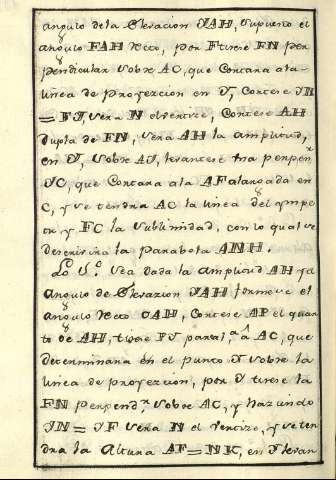 angulo de la Elevacion IAH, supuesto el
angulo FAH recto, por F tirese FN per
pendicular sobre AC, que cortara a la
linea de proyeccion en I, cortese IN
= FI, sera N el vertice, cortese AH
dupla de FN, sera AH la amplitud,
en I, sobre AI, levantese una perpenr
IC, que cortara a la AF alargada en
C, y se tendra AC la linea del ympe
tu y FC la sublimidad, con lo qual se
descrivira la parabola ANH.
Lo 5º. Sea dada la amplitud AH y el
angulo de Elevazion IAH formese el
angulo recto CAH, cortese AP el quar
to de AH, tirese PI paralª â AC, que
determinara en el punto I sobre la
linea de proyeccion, por I tirese la
FN perpendr sobre AC, y haziendo
IN = IF sera N el vertize, y se ten
dra la Altura AF = NK, en I levan